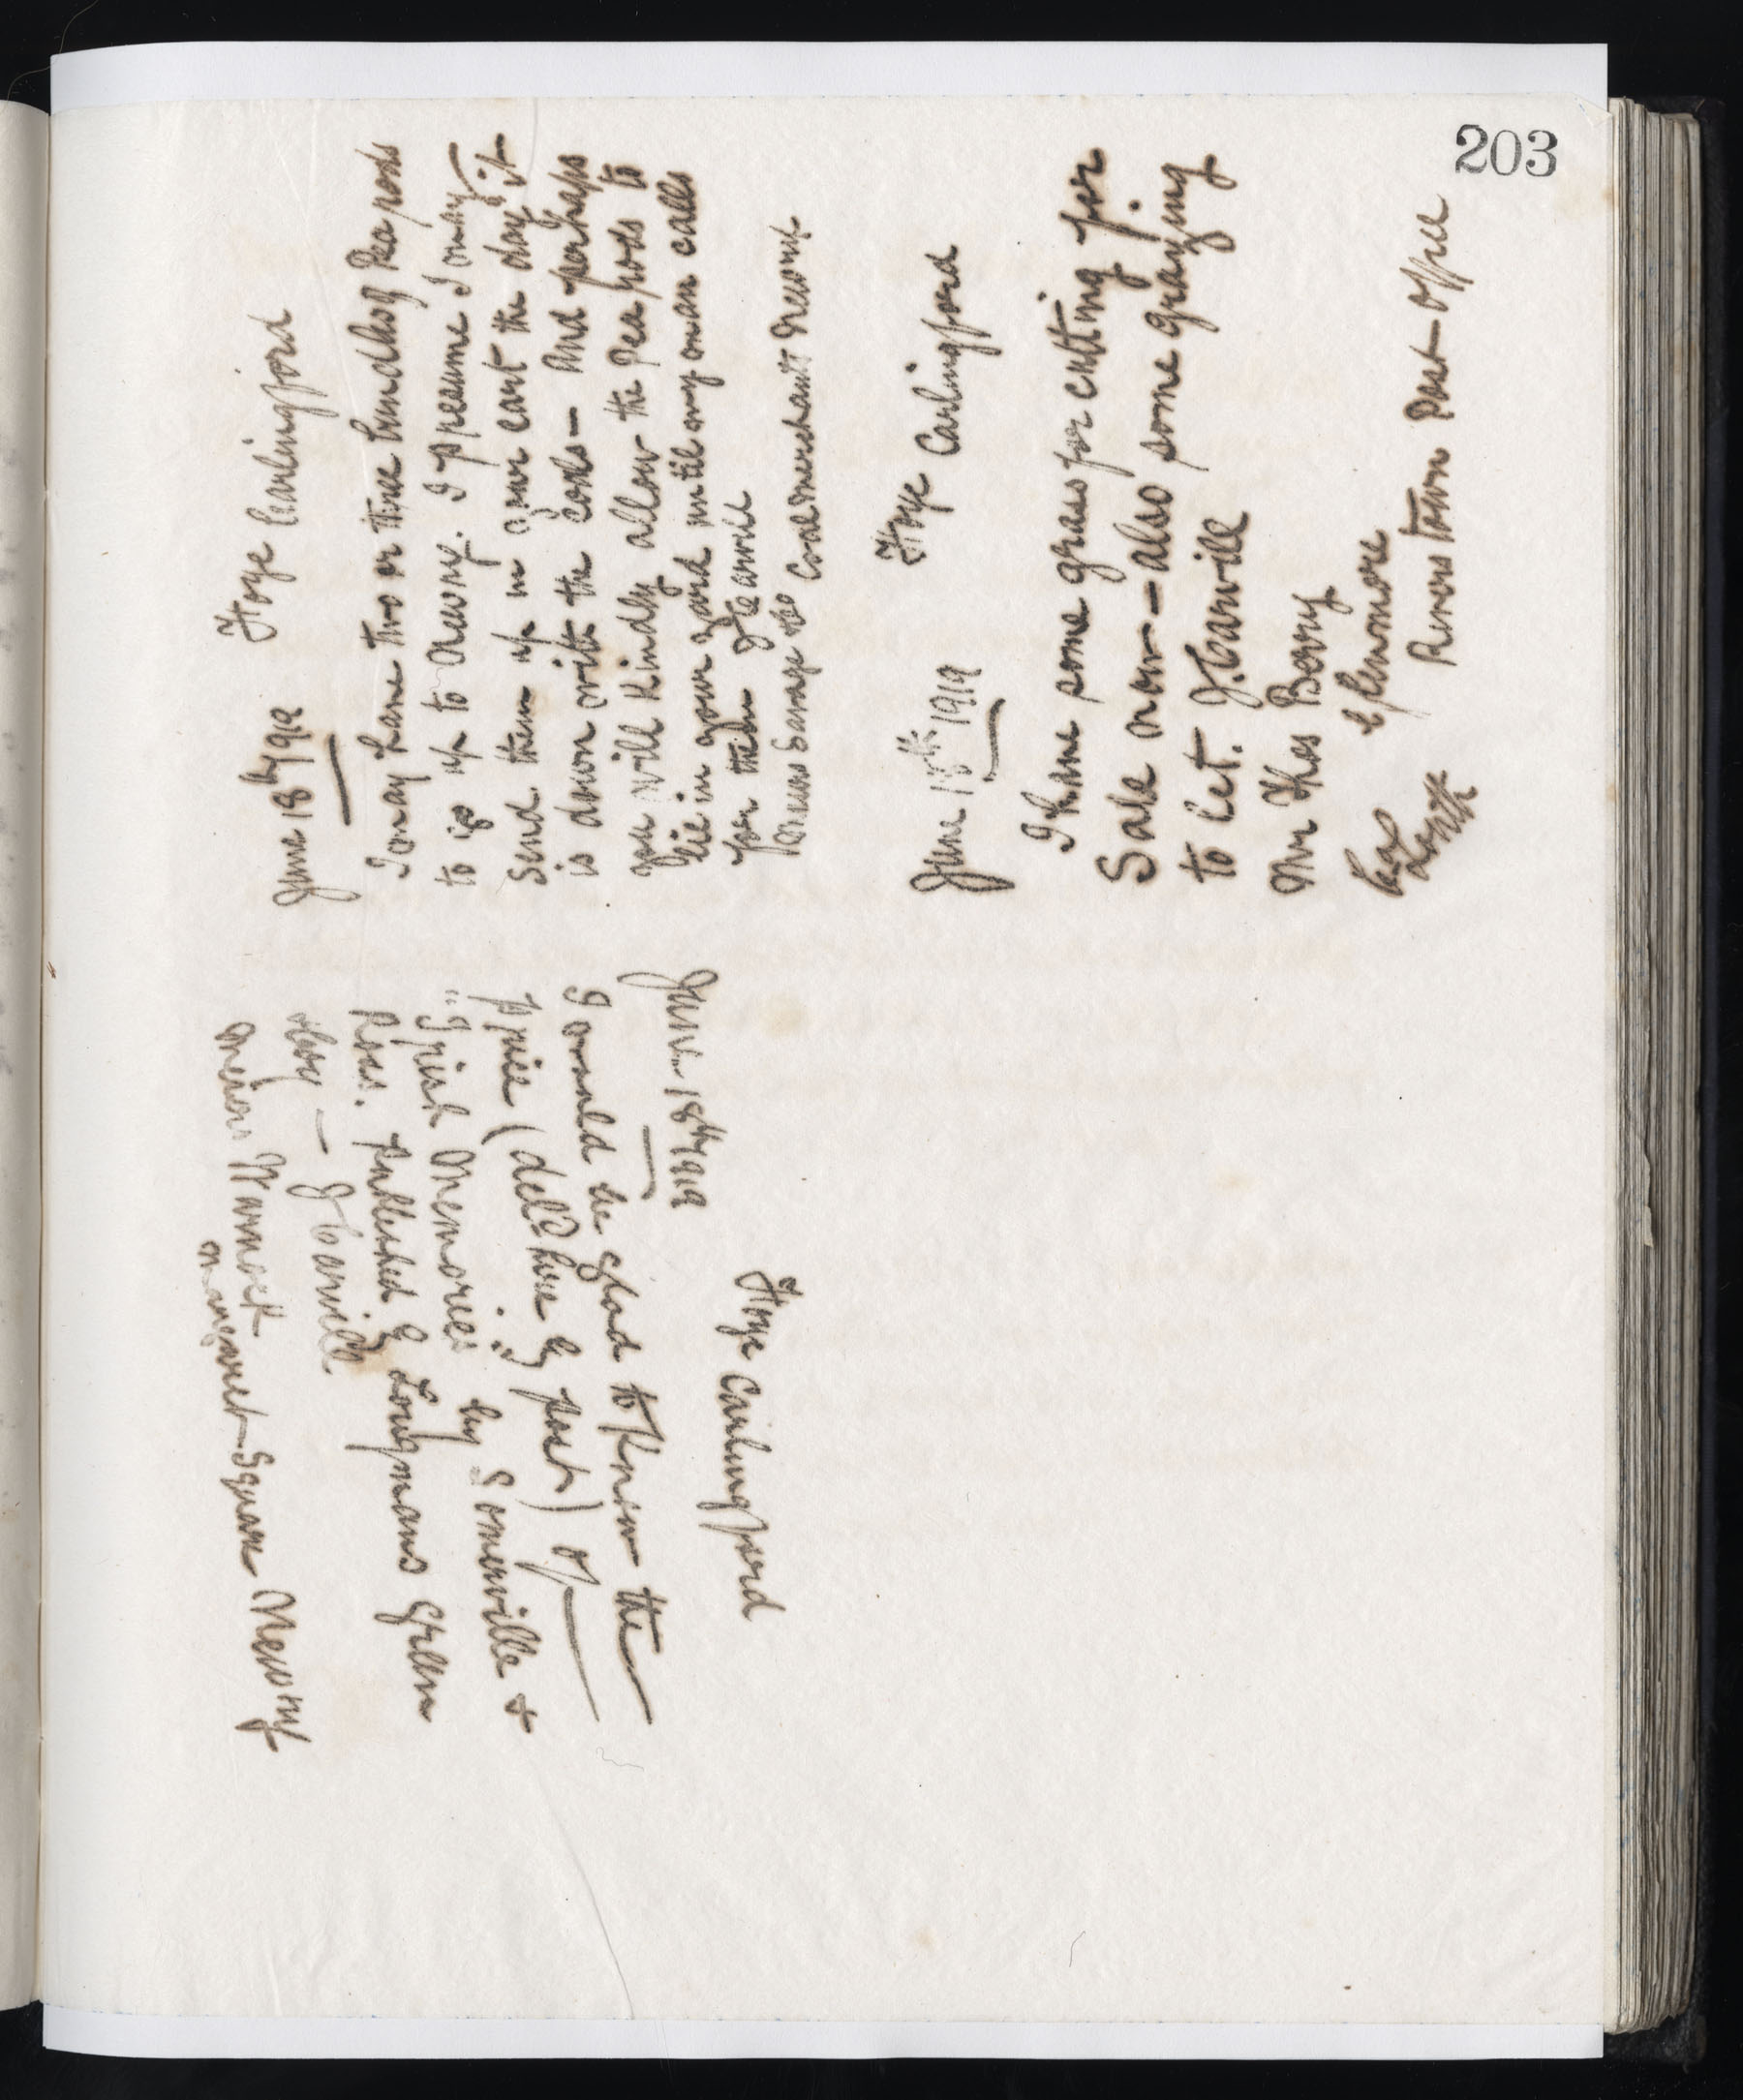 203
June 18th 1919 Foye Carlingford
I may have two or three hundred of Pea pods
to go up to Newry. I presume I may
Send them up in your cart the day it
is down with the coals - And perhaps
you will kindly allow the Pea pods to
lie in your yard until my man calls
for them J Carvill
Messrs Savage Coal Merchants Newry
June 18th 1919 Foye Carlingford
I have some grass for cutting for
Sale now - also some grazing
to let. J. Carvill
Mr Thos Berry
Glenmore
Riverstown Post Office
Co Louth
Foye Carlingford
June 18th 1919
I would be glad to know the
price (deld here by post) of
"Irish Memories" by Somerville &
Ross. Published by Longmans Green
J Carvill
Messrs Warnock
Margaret Square Newry